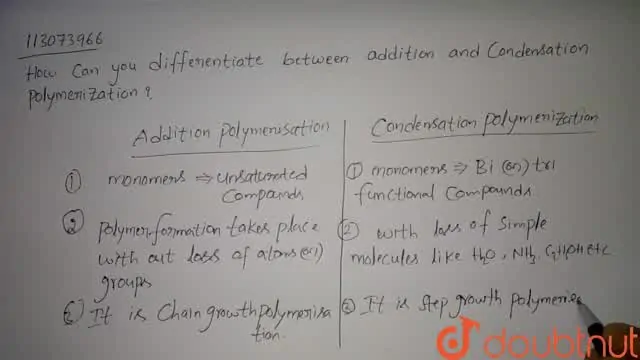 113073966
How Can you differentiate between addition and Condensation
Polymerization?
Addition Polymerisation
① monomers ⇒ unsaturated
Compounds
② Polymer formation takes place
with out loss of atoms (or)
groups
③ It is Chain growth polymerisa
tion.
Condensation Polymerization
① monomers ⇒ Bi (or) tri
functional Compounds
② with loss of Simple
molecules like H₂O, NH₃, C₂H₅OH etc
③ It is step growth polymeris
doubtnut